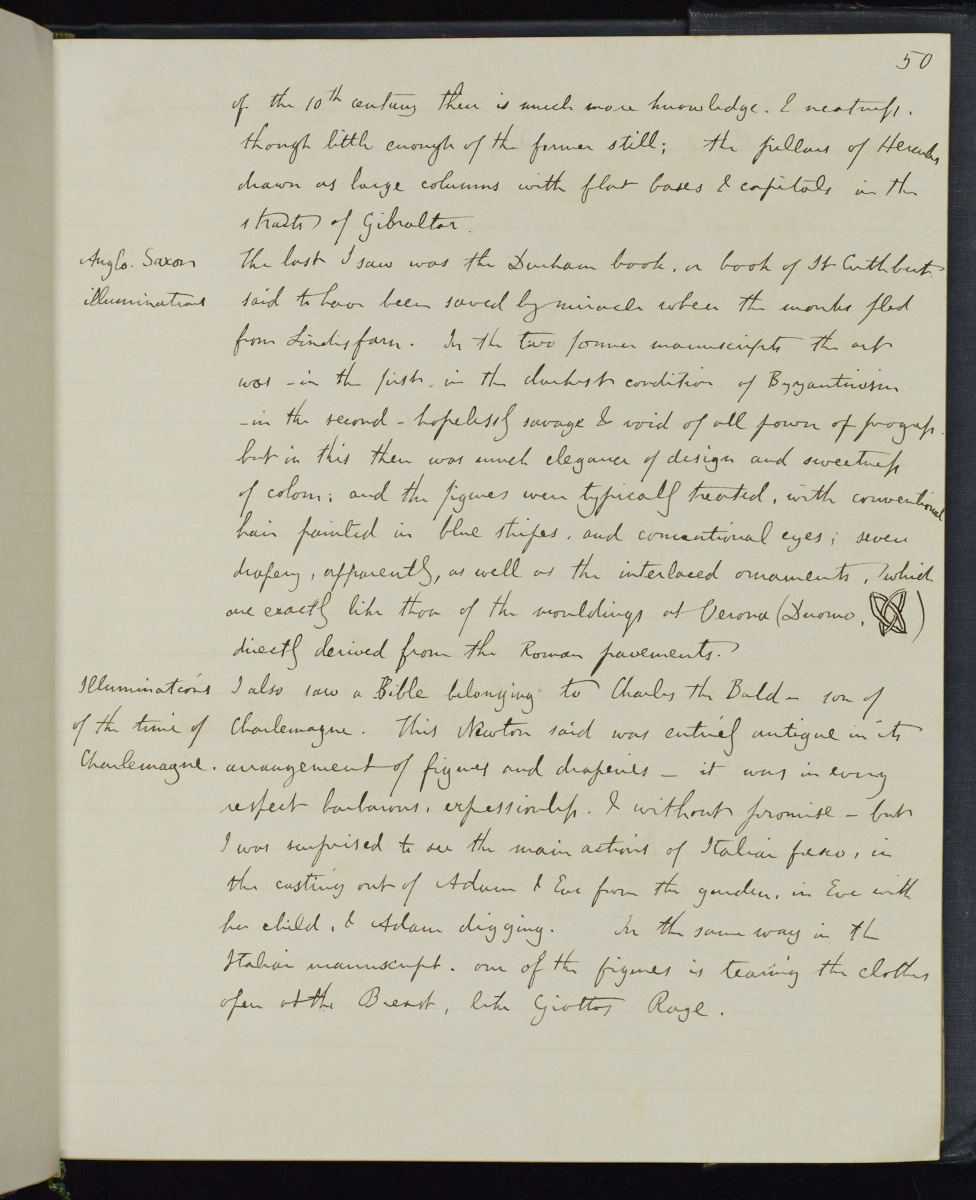 50
of the 10th century there is much more knowledge. & neatness.
though little enough of the former still; the pillars of Hercules
drawn as large columns with flat bases & capitals in the
straits of Gibraltar.
Anglo. Saxon
illuminations
The last I saw was the Durham book, or book of St Cuthbert.
said to have been saved by miracle when the monks fled
from Lindisfarn. In the two former manuscripts the art
was - in the first, in the darkest condition of Byzantinism
- in the second - hopelessly savage & void of all power of progress.
but in this there was much elegance of design and sweetness
of colour; and the figures were typically treated, with conventional
hair painted in blue stripes, and conventional eyes; severe
drapery, apparently, as well as the interlaced ornaments, (which
are exactly like those of the mouldings at Verona (Duomo, )
directly derived from the Roman pavements.)
Illuminations
of the time of
Charlemagne.
I also saw a Bible belonging to Charles the Bald - son of
Charlemagne. This Newton said was entirely antique in its
arrangement of figures and draperies - it was in every
respect barbarous, expressionless. & without promise - but
I was surprised to see the main actions of Italian fresco, in
the casting out of Adam & Eve from the garden, in Eve with
her child, & Adam digging. In the same way in the
Italian manuscript. one of the figures is tearing the clothes
open at the Breast, like Giottos Rage.